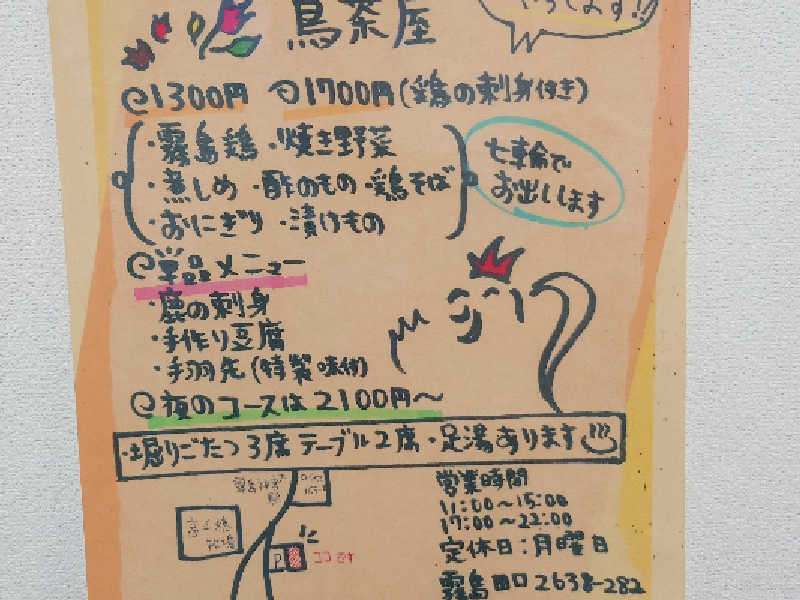 鳥茶屋
やってます!!
1300円 1700円(鶏の刺身付き)
・霧島鶏・焼き野菜
・煮しめ・酢のもの・鶏そば
・おにぎり・漬けもの
七輪で
お出しします
単品メニュー
・鹿の刺身
・手作り豆腐
・手羽先(特製味付)
夜のコースは2100円〜
・堀りごたつ3席テーブル2席・足湯あります
営業時間
11:00〜15:00
17:00〜22:00
定休日:月曜日
霧島田口2638-282
P
ココです